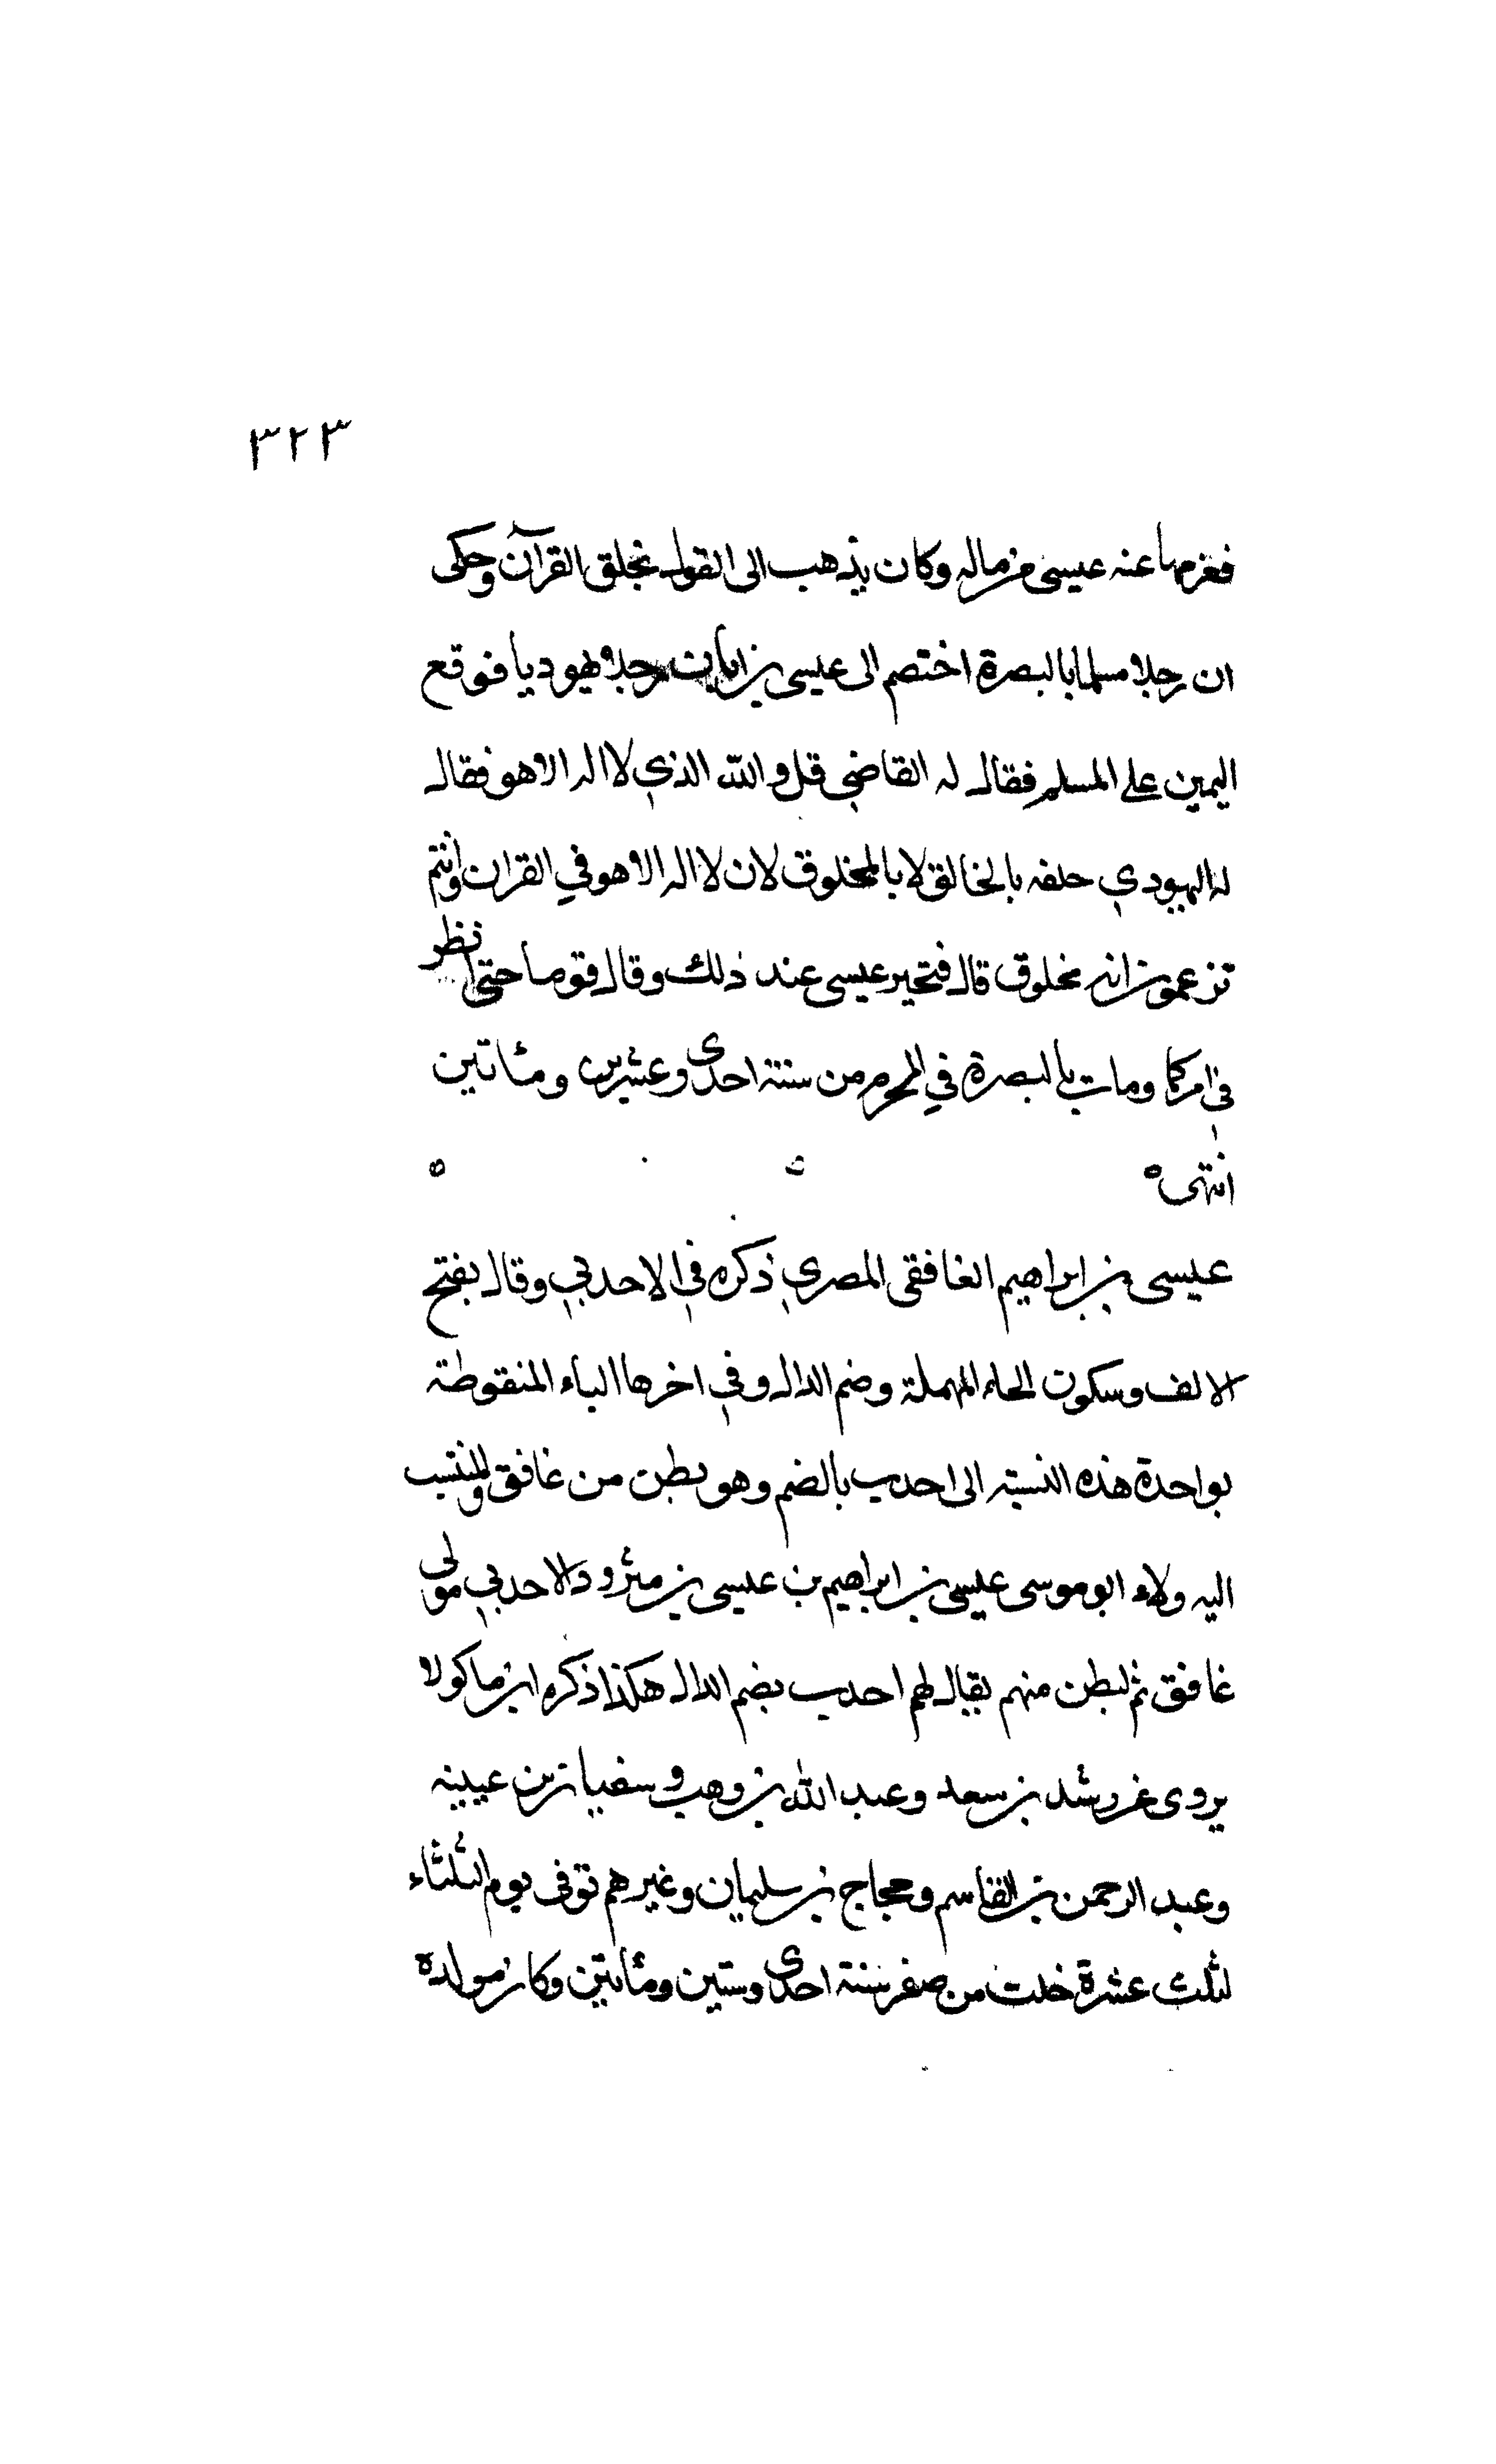 ٣٢٣
فغرمها عنه عيسى من ماله وكان يذهب الى القول بخلق القرآن وحكى
ان رجلا مسلما بالبصرة اختصم الى عيسى بن ابان رجلا يهوديا فوقع
اليمين على المسلم فقال له القاضي قل والله الذي لا اله الا هو فقال
له اليهودي حلفه بالخالق لا بالمخلوق لان لا اله الا هو في القران وانتم
تزعمون انه مخلوق قال فتحير عيسى عند ذلك وقال قوما حتى انظر
في امركما ومات بالبصرة في المحرم من سنة احدى وعشرين ومئاتين
انتهى ه ه
عيسى بن ابراهيم الغافقى المصري ذكره في الاحدبي وقال بفتح
الالف وسكون الحاء المهملة وضم الدال وفي اخرها الباء المنقوطة
بواحدة هذه النسبة الى احدب بالضم وهو بطن من غافق والمنتسب
اليه ولاء ابو موسى عيسى بن ابراهيم بن عيسى بن مثرود الاحدبي مولى
غافق ثم لبطن منهم يقال لهم احدب بضم الدال هكذا ذكره ابن ماكولا
يروى عن رشد بن سعد وعبد الله بن وهب وسفيان بن عيينه
وعبد الرحمن بن القاسم وحجاج بن سليمان وغيرهم توفى يوم الثلثاء
لثلث عشرة خلت من صفر سنة احدى وستين ومئاتين وكان مولده